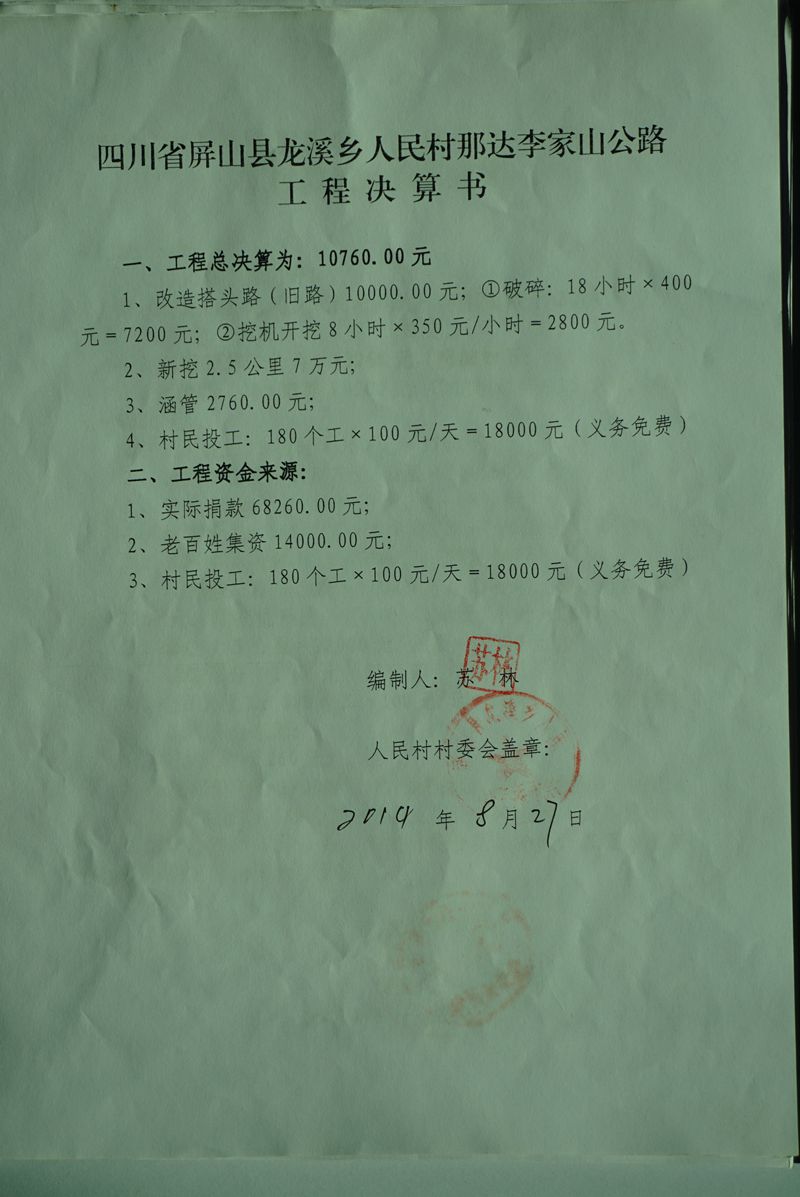 四川省屏山县龙溪乡人民村那达李家山公路
工程决算书
一、工程总决算为：10760.00元
1、改造搭头路（旧路）10000.00元；①破碎：18小时×400
元＝7200元；②挖机开挖8小时×350元/小时＝2800元。
2、新挖2.5公里7万元；
3、涵管2760.00元；
4、村民投工：180个工×100元/天＝18000元（义务免费）
二、工程资金来源：
1、实际捐款68260.00元；
2、老百姓集资14000.00元；
3、村民投工：180个工×100元/天＝18000元（义务免费）
苏林
编制人：苏 林
人民村村委会盖章：
2014年8月27日